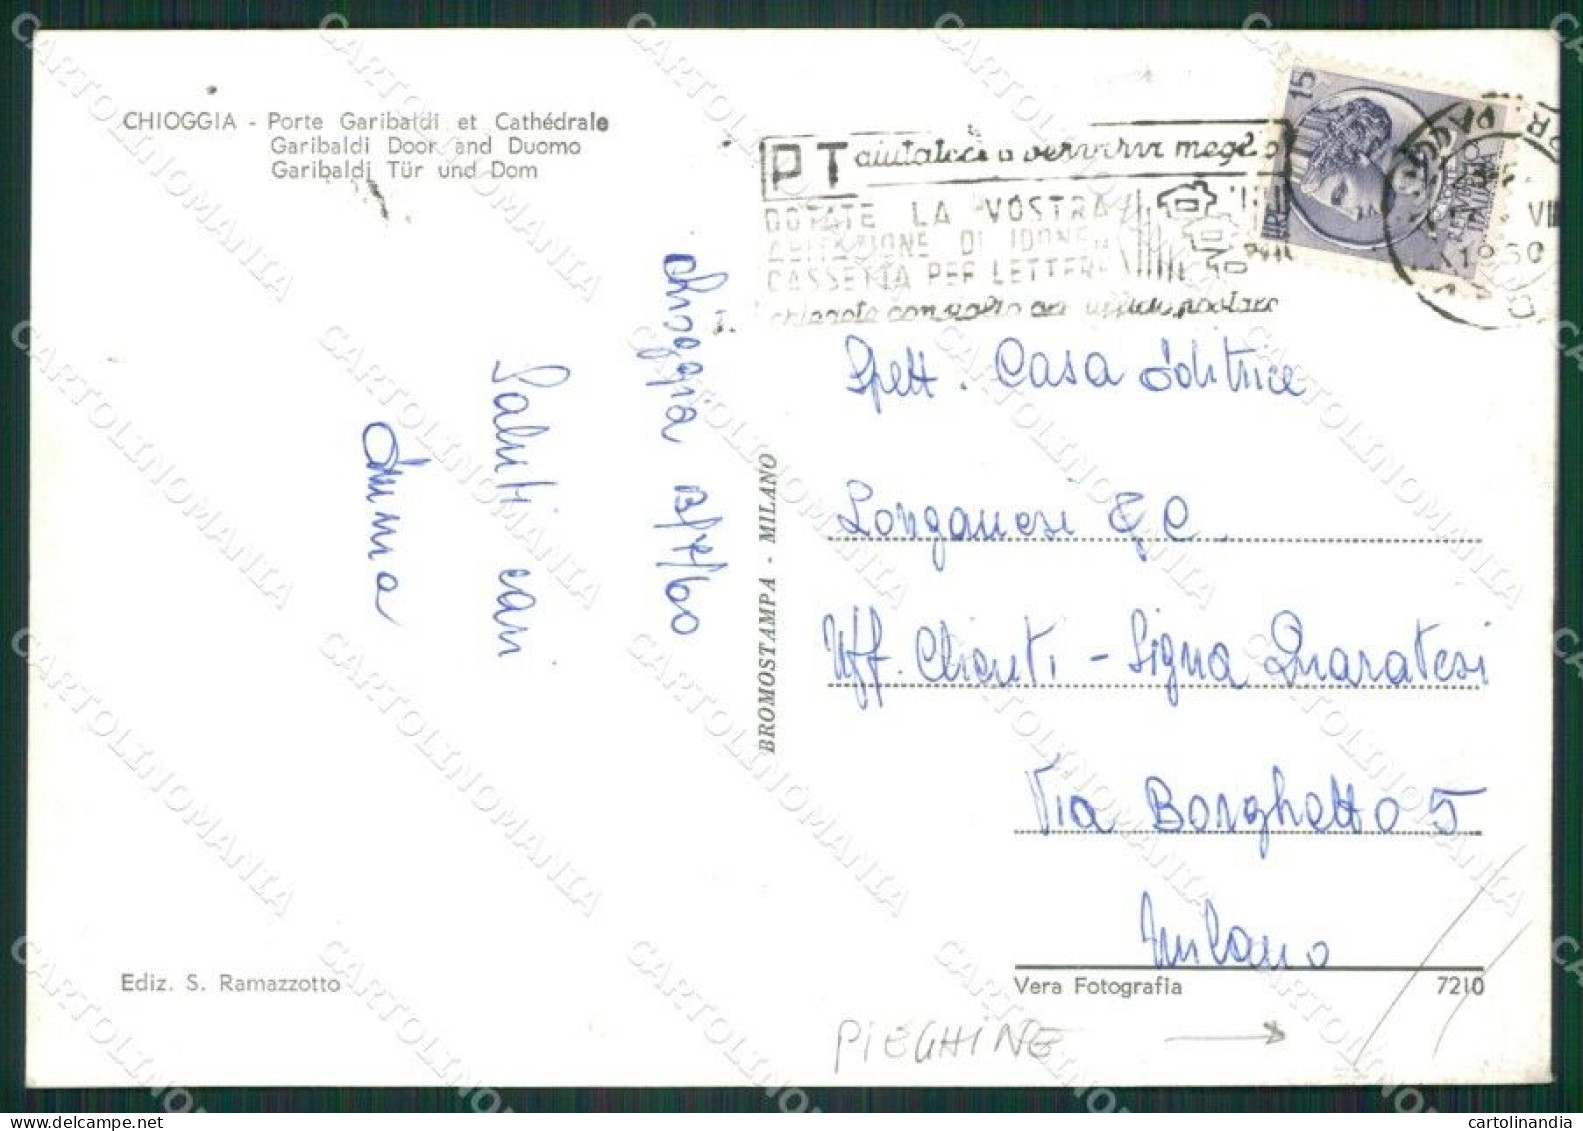 CHIOGGIA - Porte Garibaldi et Cathédrale
Garibaldi Door and Duomo
Garibaldi Tür und Dom
PT aiutateci a servirvi meglio
DOTATE LA VOSTRA
ABITAZIONE DI IDONEA
CASSETTA PER LETTERE
chiedete consiglio agli uffici postali
15
LIRE
1960
Chioggia 13/7/60
Saluti cari
Anna
BROMOSTAMPA - MILANO
Spett. Casa Editrice
Longanesi & C.
Uff. Clienti - Sig.na Quaratesi
Via Borghetto 5
Milano
Ediz. S. Ramazzotto
Vera Fotografia
7210
PIEGHINE →
CARTOLINOMANIA
cartolinandia